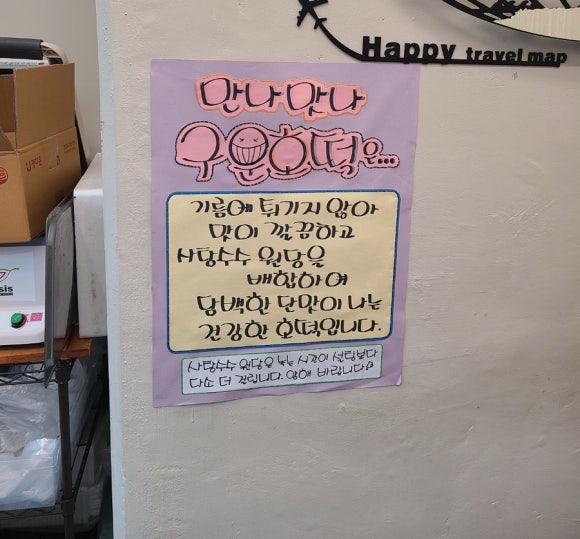 Happy travel map
만나맛나
구운호떡은...
기름에 튀기지 않아
맛이 깔끔하고
사탕수수 원당을
배합하여
담백한 단맛이 나는
건강한 호떡입니다.
사탕수수 원당은 녹는 시간이 설탕보다
다소 더 걸립니다. 양해 바랍니다